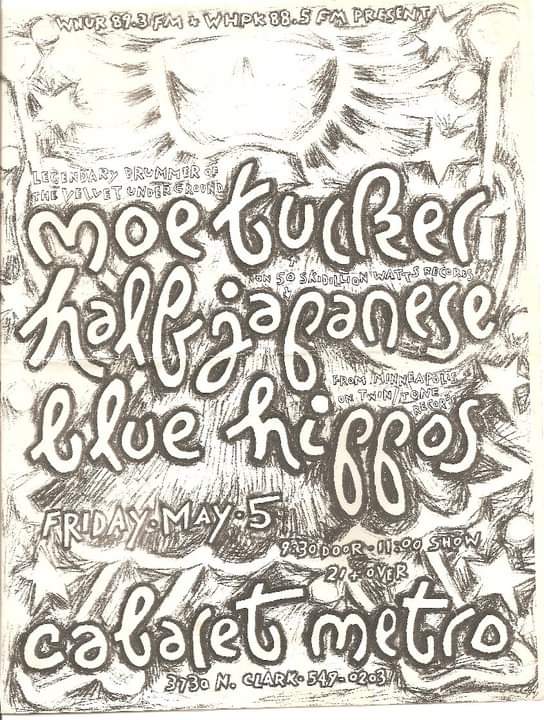 WNUR 89.3 FM + WHPK 88.5 FM PRESENT
LEGENDARY DRUMMER OF
THE VELVET UNDERGROUND
moe tucker
+
ON 50 SKIDILLION WATTS RECORDS
+
half japanese
FROM MINNEAPOLIS
ON TWIN/TONE
RECORDS
blue hippos
FRIDAY·MAY·5
9:30 DOOR·11:00 SHOW
21 + OVER
cabaret metro
3730 N. CLARK·549-0203